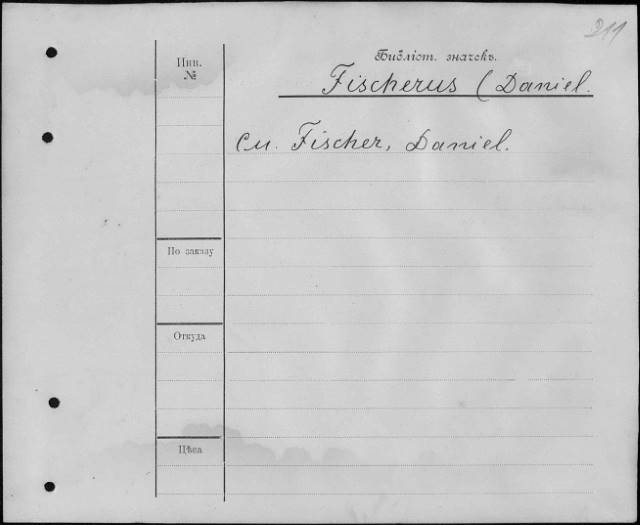 211
Инв.
№
Библіот. значекъ.
Fischerus (Daniel.
См. Fischer, Daniel.
По заказу
Откуда
Цѣна